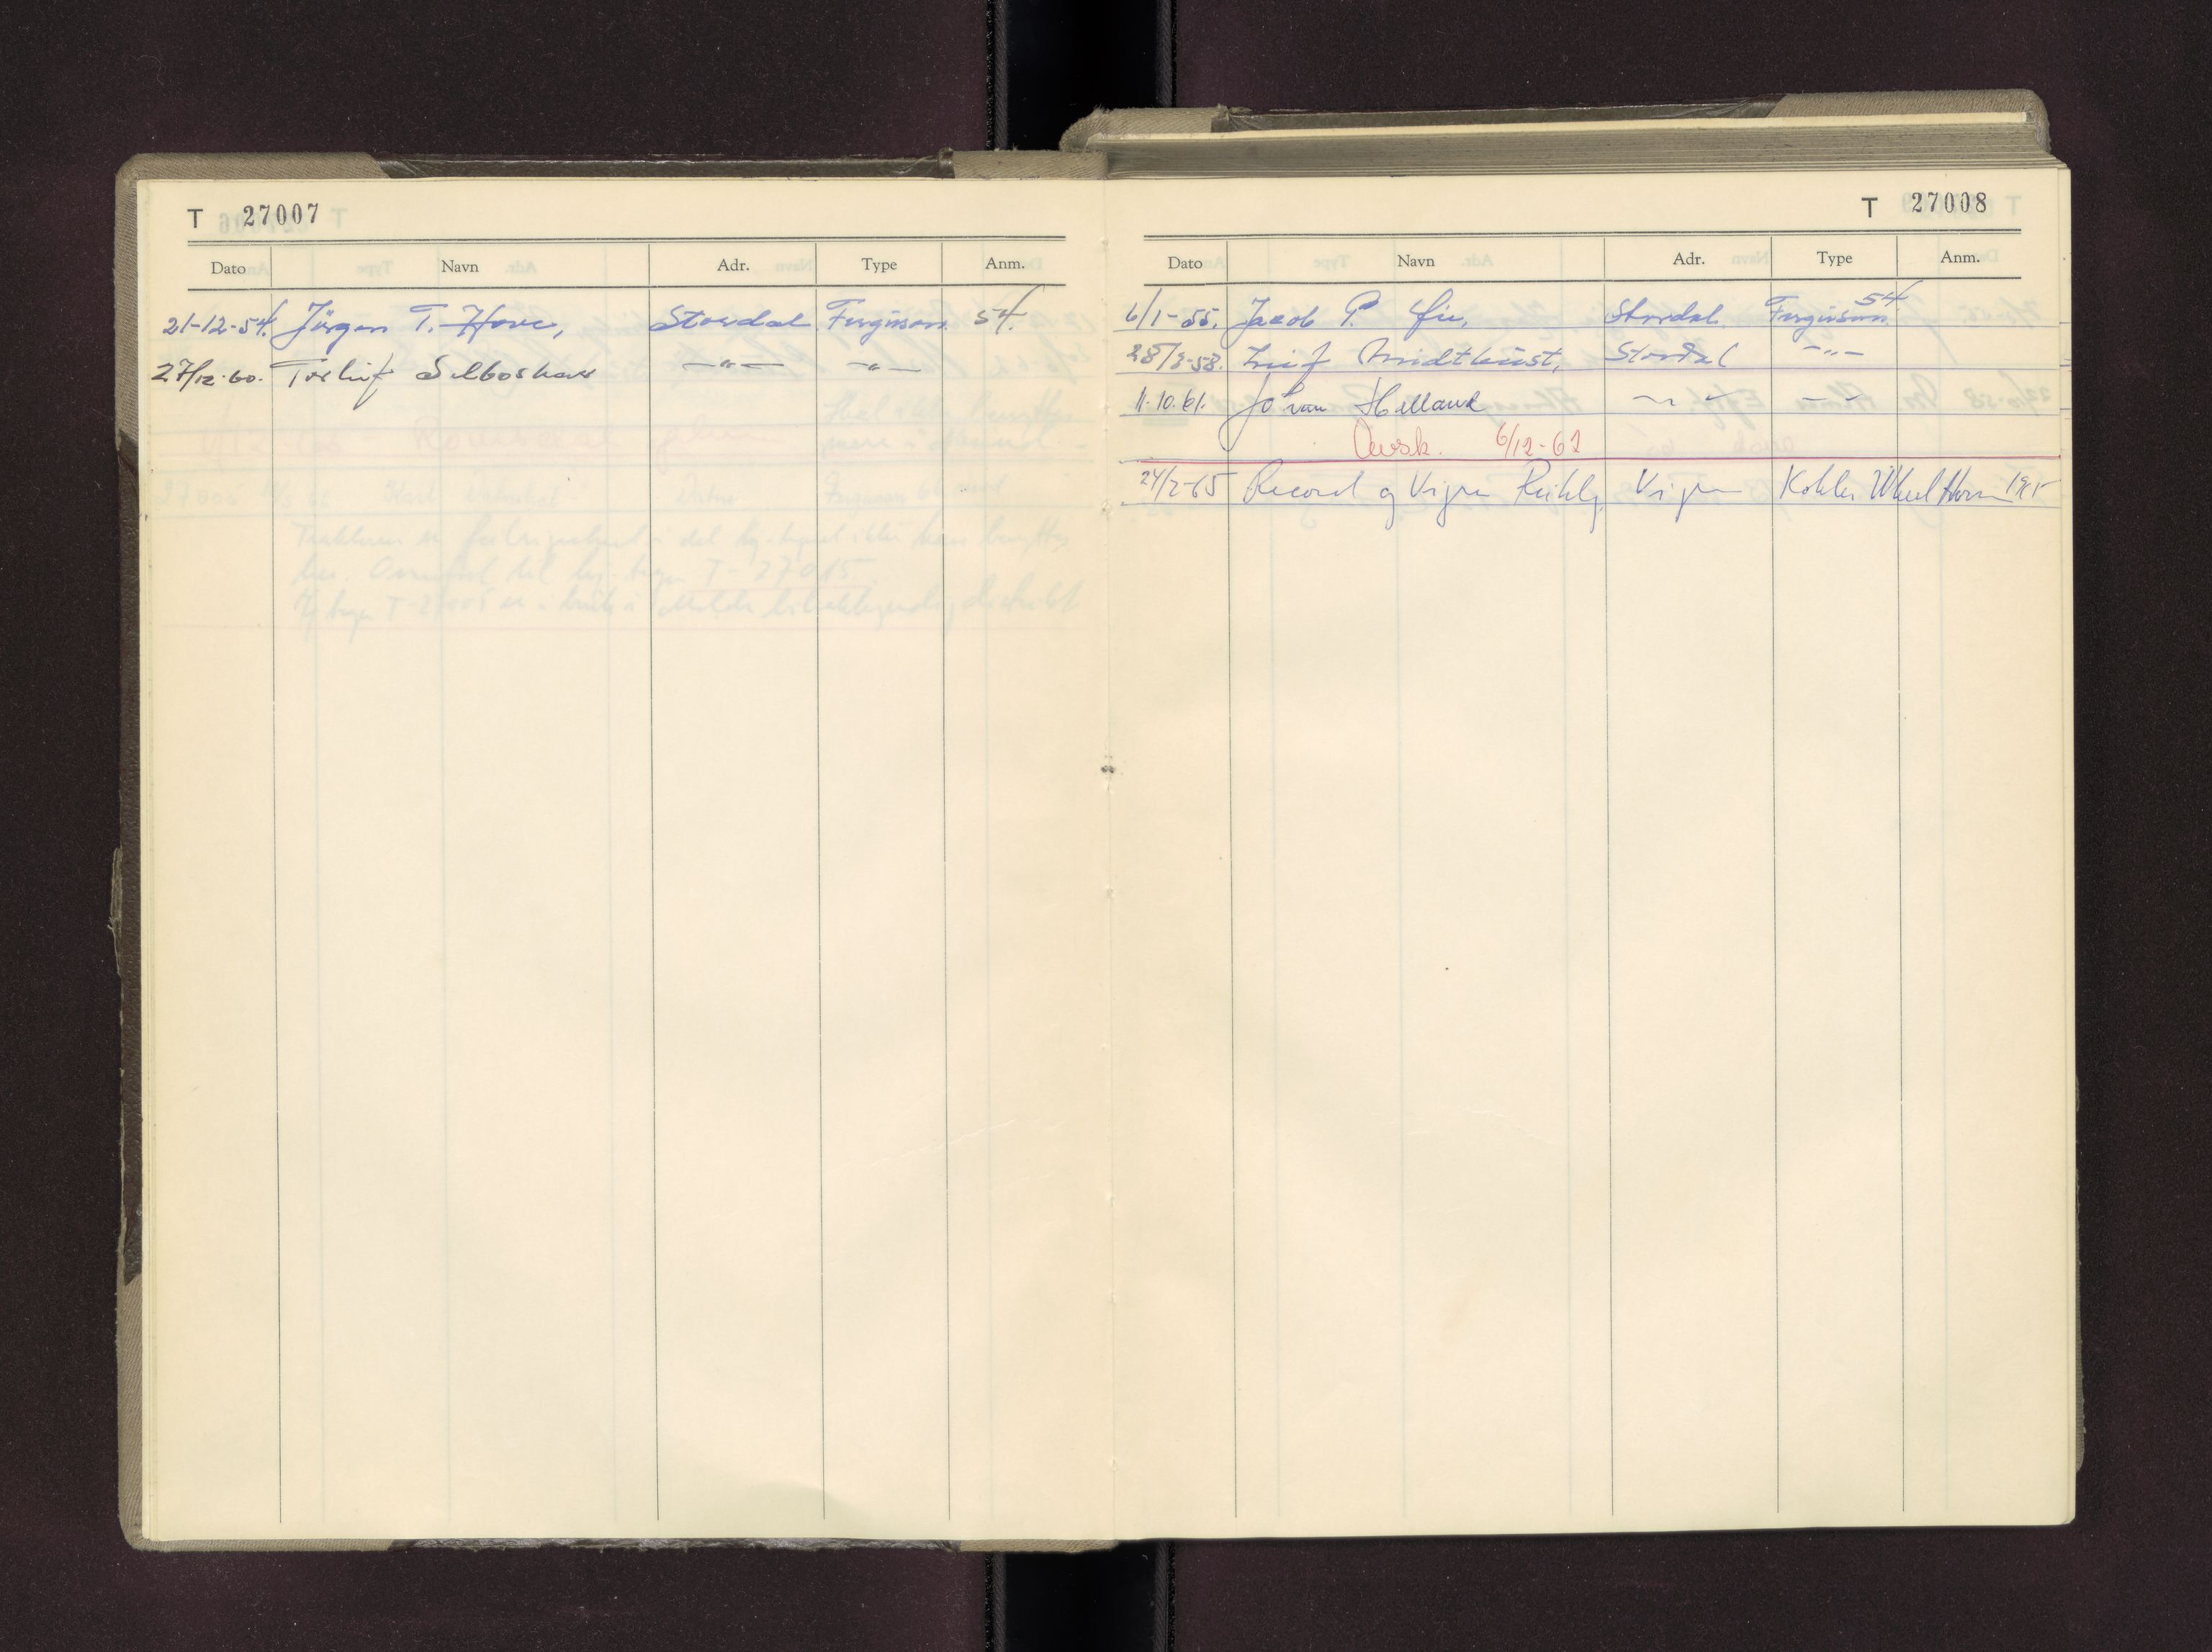 T 27007
Dato Navn Adr. Type Anm.
21-12-54. Jörgen T. Hove, Stordal Ferguson 54.
27/12-60. Torleif Selboskar —"— —"—
T 27008
Dato Navn Adr. Type Anm.
6/1-55. Jacob P. Stordal. Ferguson 54
28/3-58. Leif Stordal —"—
11.10.61. Johan Helland —"— —"—
Avsk. 6/12-62
24/2-65 Record og Vigra Vigra Kohler Wheel Horse 1965